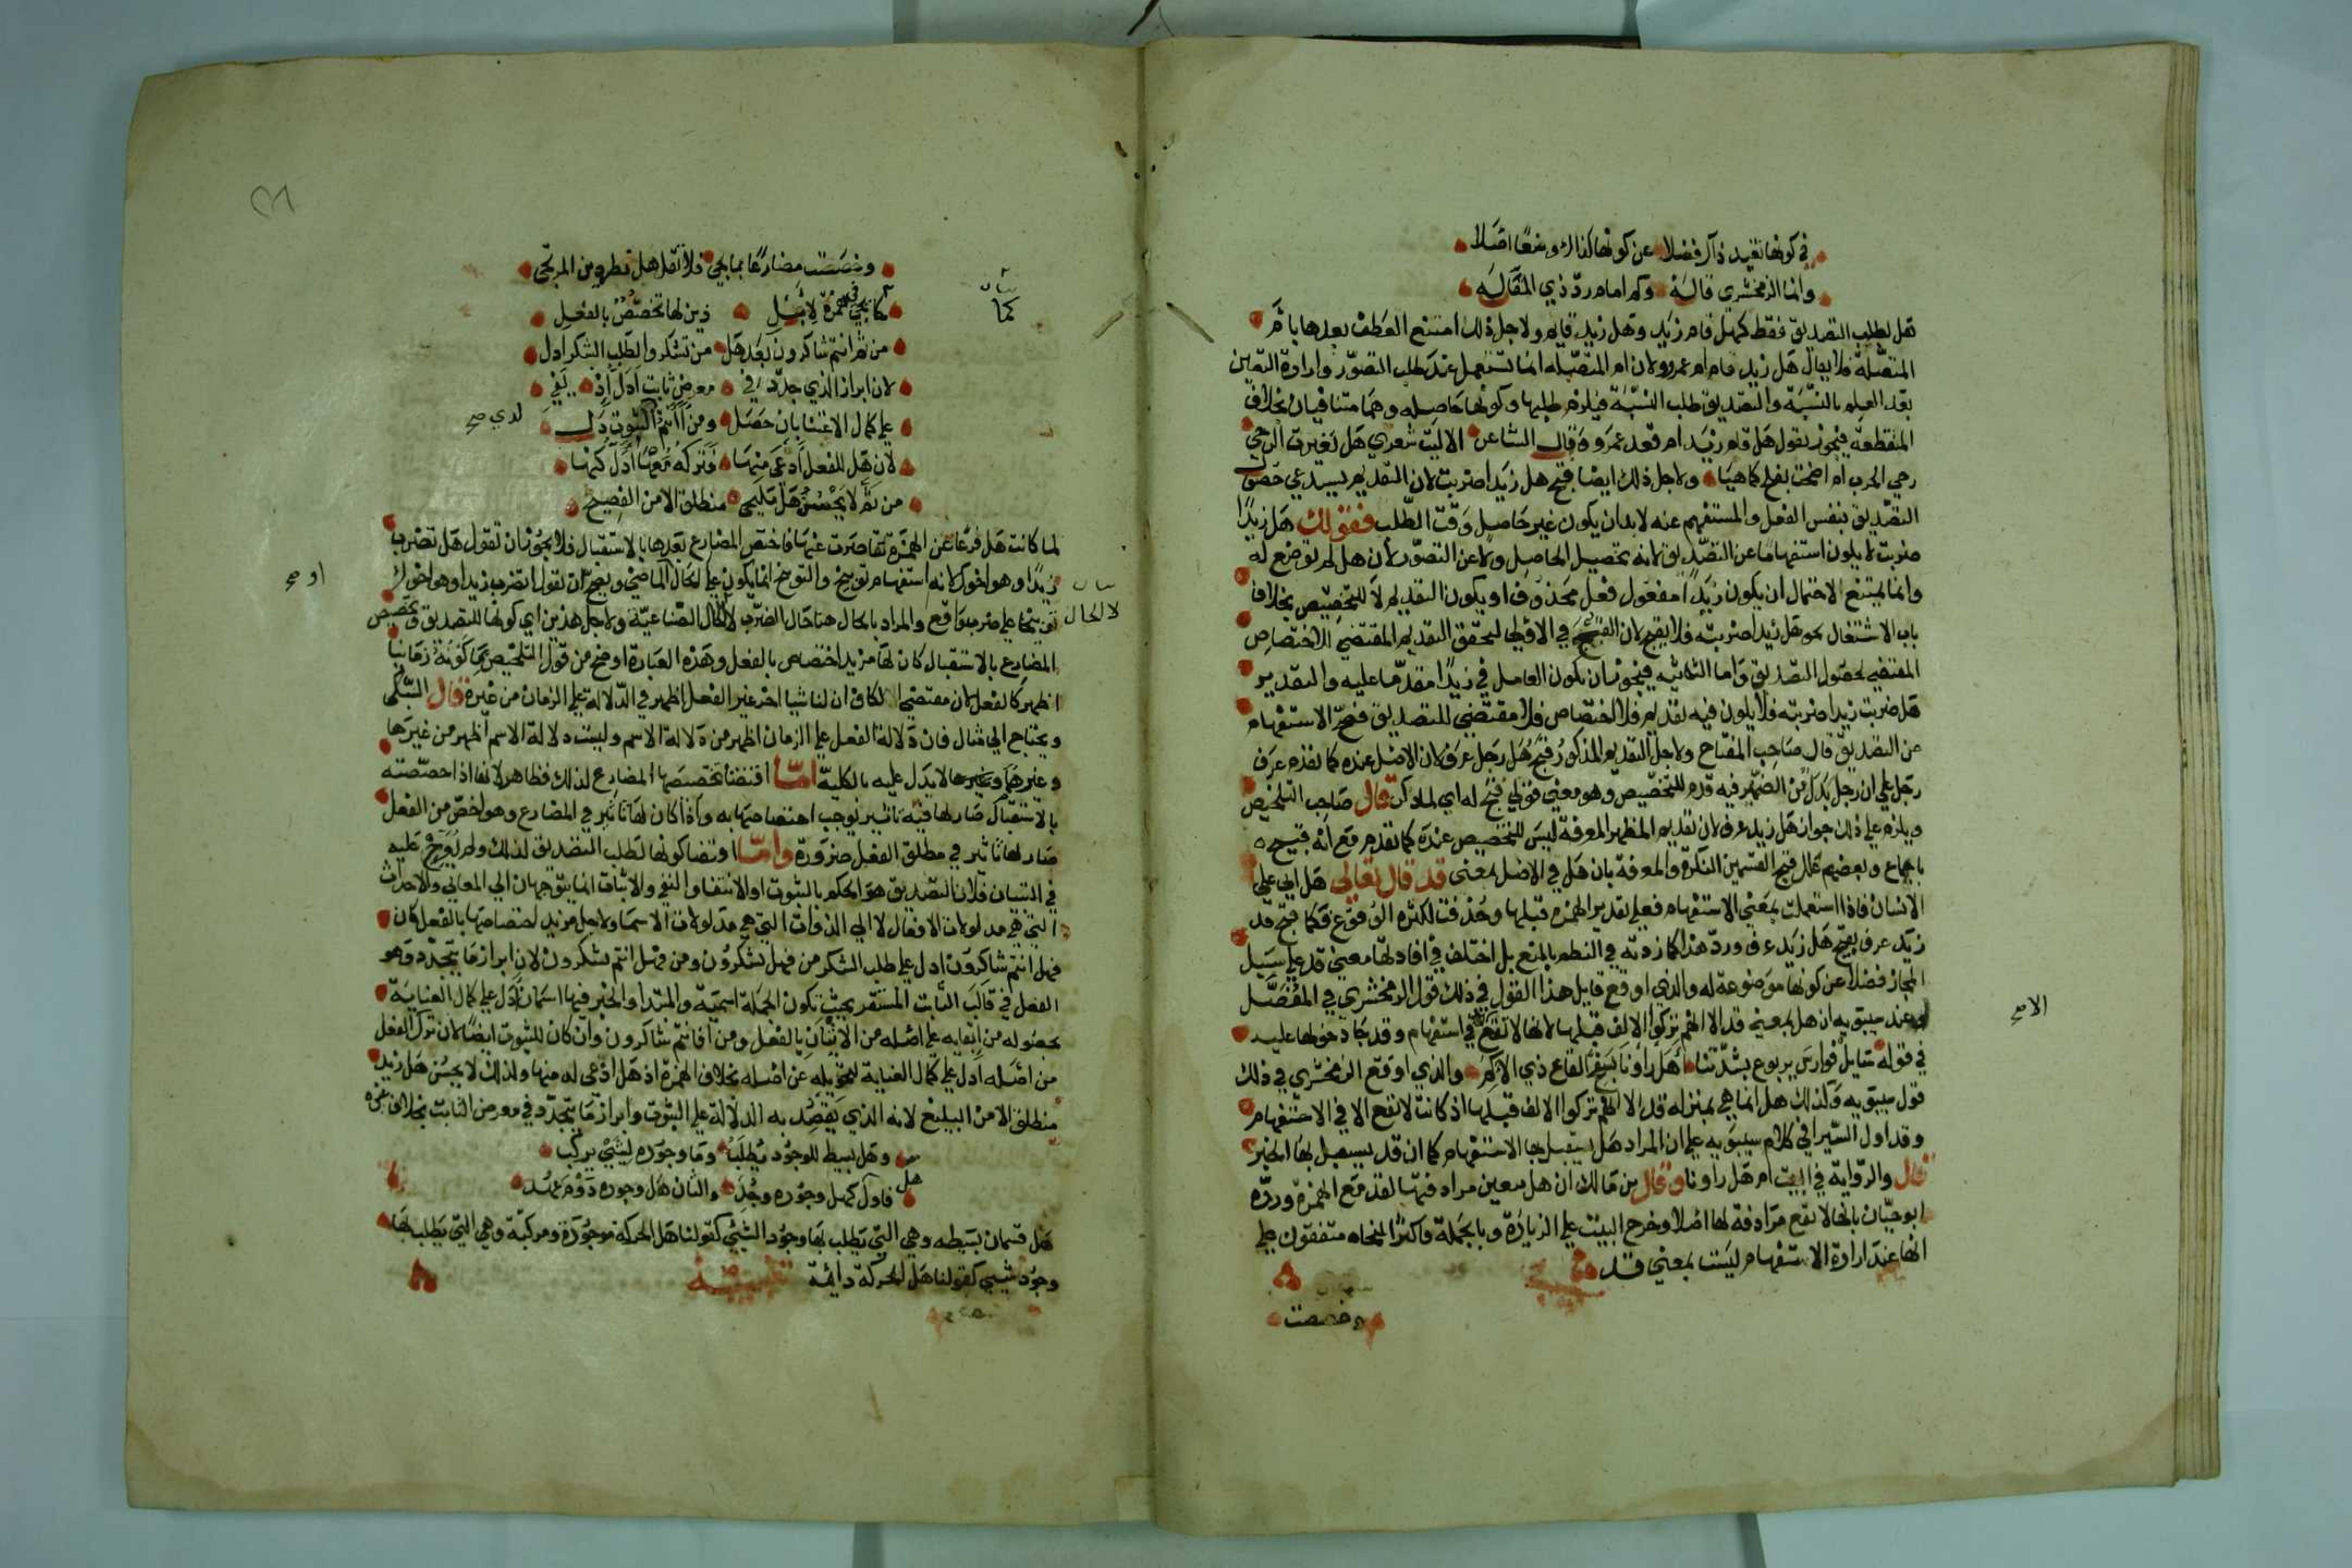 في كونها تفيد ذاك فضلا عن كونها كذاك وضعًا اصّلا
وانما الزمخشري قاله وكم امام ردّ ذي المقَالَه
هَل لطلب التصديق فقط كهل قام زيَد وهَل زيد قايم ولاجل ذلك امتنع العَطف بعدها بام
المتصلة فلا يقال هَل زيد قام ام عمرو ولان ام المتصّله انما تستعمل عند طلب التصوّر وارادة التعيين
بعد العلم بالنسبَة والتصديق طلب النسبَة فيلزم طلبها وكونها حَاصله وهما متنافيان بخلاف
المنقطعة فيجوز بقول هَل قام زيَد ام قعد عمرو وقال الشاعر الا ليت شعري هَل تغيرت الرحي
رحي الحرب ام اضحت بفلج كما هيَا ولاجل ذلك ايضا قبح هل زيَدا ضربت لان التقديم يستدعي حصول
التصّديق بنفس الفعل والمستفهم عنه لابد ان يكون غير حَاصل وَقت الطّلب فقولك هَل زيدًا
ضربت لا يكون استفهامًا عن التصّديق لانه تحصيل الحاصل ولا عن التصوّر لأن هل لم توضع له
وانما لم يمتنع لاحتمال ان يكون زيَدًا مفعَول فعْل محَذوف او يكون التقديم لا للتخصّيص بخلاف
باب الاشتغال نحو هَل زيدا ضربته فلا يقبح لان القبح في الاولي لتحقق التقديم المقتضي الاختصاص
المقتضي لحصول التصديق وَاما الثانيه فيجوز ان يكون العامل في زيدًا مقدّما عليه والتقدير
هَل ضربت زيدا ضربته فلا يكون فيه تقديم فلا اختصاص فلا مقتضي للتصديق فصحّ الاستفهام
عن التصديق قال صَاحِب المفتاح ولاجل التقديم المذكور قبح هَل رجَل عرَف لان الاصْل عنده كما تقدم عرَف
رجل علي ان رجل بدَل من الضمير فيه قدم للتخصّيص وهو معني قولي قبح له اي لما ذكر قال صَاحِب التلخيص
ويلزم علي ذلك جواز هَل زيد عرف لان تقديم المظهر المعرفة ليسَ للتخصيص عندَه كما تقدم مَع انه قبيح
باجماع وبعضهم علل قبح القسمين النكرة والمعرفة بان هَل في الاصْل بمعنى قد قال تعالي هَل اتي علي
الانسان فاذا استعملت بمعَني الاستفهام فعلي تقدير الهمزه قبلها وحُذفت لكثرة الوُقوع فكما قبح قد
زيد عرف يقبح هَل زيَد عرف وردّ هذا كما زدته في النظم بالمنع بل اختلف في افادتها معني قد علي سَبيل
المجاز فضلا عن كونها موَضوعة له والذي اوقع قايل هذا القول في ذلك قول الزمخشري في المفُصَّل
وعند سيبَويه ان هل بمعني قد الا انهم تركوا الالف قبلها لانها لا تقع في استفهام وقد جَا دخولها عليه
في قوله سَايل فوارسَ يربوع بشدّتنا أهَل راونا بسَفح القاع ذي الاكَم والذي اوقع الزمخشري في ذلك
قول سيبَويه وَكذلك هل انما هي بمنزله قد الا انهم تركوا الالف قبلها اذ كانت لا تقع الا في الاستفهام
وقد اول السّيرافي كلام سيبوَيه علي ان المراد هَل يستقبل بها الاستفهام كما ان قد يستقبل بها الخبر
قال والرّواية في البيت ام هَل راونا وقال بن مَالك ان هل يتعين مرادفتها لقد مَع الهمزة وردّه
ابو حيّان بانها لا تقع مرَادفة لها اصْلا وخرج البيت علي الزيادَة وبالجَملة فاكثر النحاه متفقون علي
انها عندَ ارادة الاستفهام ليسَت بمعني قد
وخصصت
الا صح
وخصصَت مضارعًا بما يجي فلا تقل هل تطرد من المرتجى
كما يجي همزة
ذين لها تخصّصٌ بالفعلِ
من ثم انتم شاكرون بَعْد هَل من تشكروا لطَلبِ الشكر ادل
لان ابراز الذي جدّد في معرض ثابت اَدَل اِذْ يَفي
علي كمال الاعتنا بان حَصَل ومن أأنتم الثبوت دَل
لأن هَل للفعل أَدعَى منها فتركهُ مَعْها اَدَلّ كنها
من ثَمّ لا يَحْسُنُ هَل
منطلق الا من الفصِيح
لما كانت هَل فرْعًا عَن الهمزَة تقاصرت عنهَا فاختصّ المضارع بَعْدها بالاستقبال فلا يجُوز ان تقول هَل تضرب
زيدًا وهو اخوك لانه استفهام توبيخ والتوبيخ انما يكون علي الحَال الماضي ويصح ان تقول اتضرب زيدا وهو اخوك
توبيخا علي ضرب واقع والمراد بالحال هنا حَال الضرب لا الحَال الصّناعيّة ولاجل هذين اي كونها للتصديق وتخصّيص
المضارع بالاستقبال كان لهَا مزيد اختصاص بالفعل وهَذه العبَارة اوضح من قَول التلخيص بما كونه زمَانيا
اظهر كالفعل لان مقتضي الكاف ان لنا شيا اخر غير الفعل اظهر في الدّلالة علي الزمان من غيره قال السّبكى
ويحتاج الي مثال فان دلالة الفعل علي الزمان اظهر من دلالة الاسم وليست دلالة الاسم اظهر من غيرَها
وغيرهمَا وغيرها لا يدَل عليه بالكليَة امّا اقتضا تخصّيصَها المضارع لذلك فظاهر لانها اذا خصّصته
بالاستقبَال صَار لها فيه تاثير يوجب اختصَاصَها به واذا كان لهَا تاثير في المضارع وهو اخصّ من الفعل
صَار لها تاثير في مطلق الفعل ضرورَة وامّا اقتضا كونها لطلب التصديق لذلك ولم
عَليه
في التبيان فلان التصّديق هوَ الحكم بالثبوت او الانتفا والنفي والاثبات انما يتوَجهان الي المعاني والاحداث
التي هيَ مدلولات الافعال لا الي الذوات التي هي مدلولات الاسمَا ولاجل مزيد اختصاصهَا بالفعل كان
فهل انتم شاكروَن ادل علي طلب الشكر من فهل تشكروُن ومن فهل انتم تشكرون لان ابراز مَا يتجدّد وَهو
الفعل في قالب الثابت المستقر بحيث تكون الجمَلة اسمية والمبتدا والخبر فيها اسمان اَدَل علي كمال العنايَة
بحصوله من ابقايه علي اصْله من الاتيان بالفعل ومن افانتم شاكرون وان كان للثبوت ايضًا لان ترك الفعل
من اصَله ادل علي كمال العناية لتحويله عن اصله بخلاف الهمزة اذ هَل ادعى له منها ولذلك لا يحسُن هَل زيد
منطلق الا من البليغ لانه الذي يَقصُد به الدلالَة علي الثبوت وابراز مَا يتجدّد في معرض الثابت بخلاف غيره
وهَل بسيط للوجوُد يُطلَب ومَا وجوُده لشيْ يركّب
فاولَ كهل وجوُده وجُدَ والثان هَل وجوده دَوْم عهُد
هَل قسمان بسَيطه وهي التي يَطلب بهَا وجوُد الشيْ كقولنا هَل الحركة موجوُدَة ومركبّة وهي التيَ يَطلب بهَا
وجوُد شيي كقولنا هَل الحركة دائمة تنبيه
كما
لا لحال
او صح
لدي صح
هل